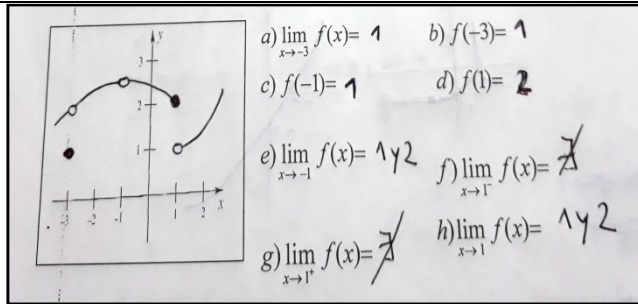 y
3
2
1
-3 -2 -1 1 2 x
a) lim x→-3 f(x)= 1
b) f(-3)= 1
c) f(-1)= 1
d) f(1)= 2
e) lim x→-1 f(x)= 1 y 2
f) lim x→1⁻ f(x)= ∄
g) lim x→1⁺ f(x)= ∄
h) lim x→1 f(x)= 1 y 2